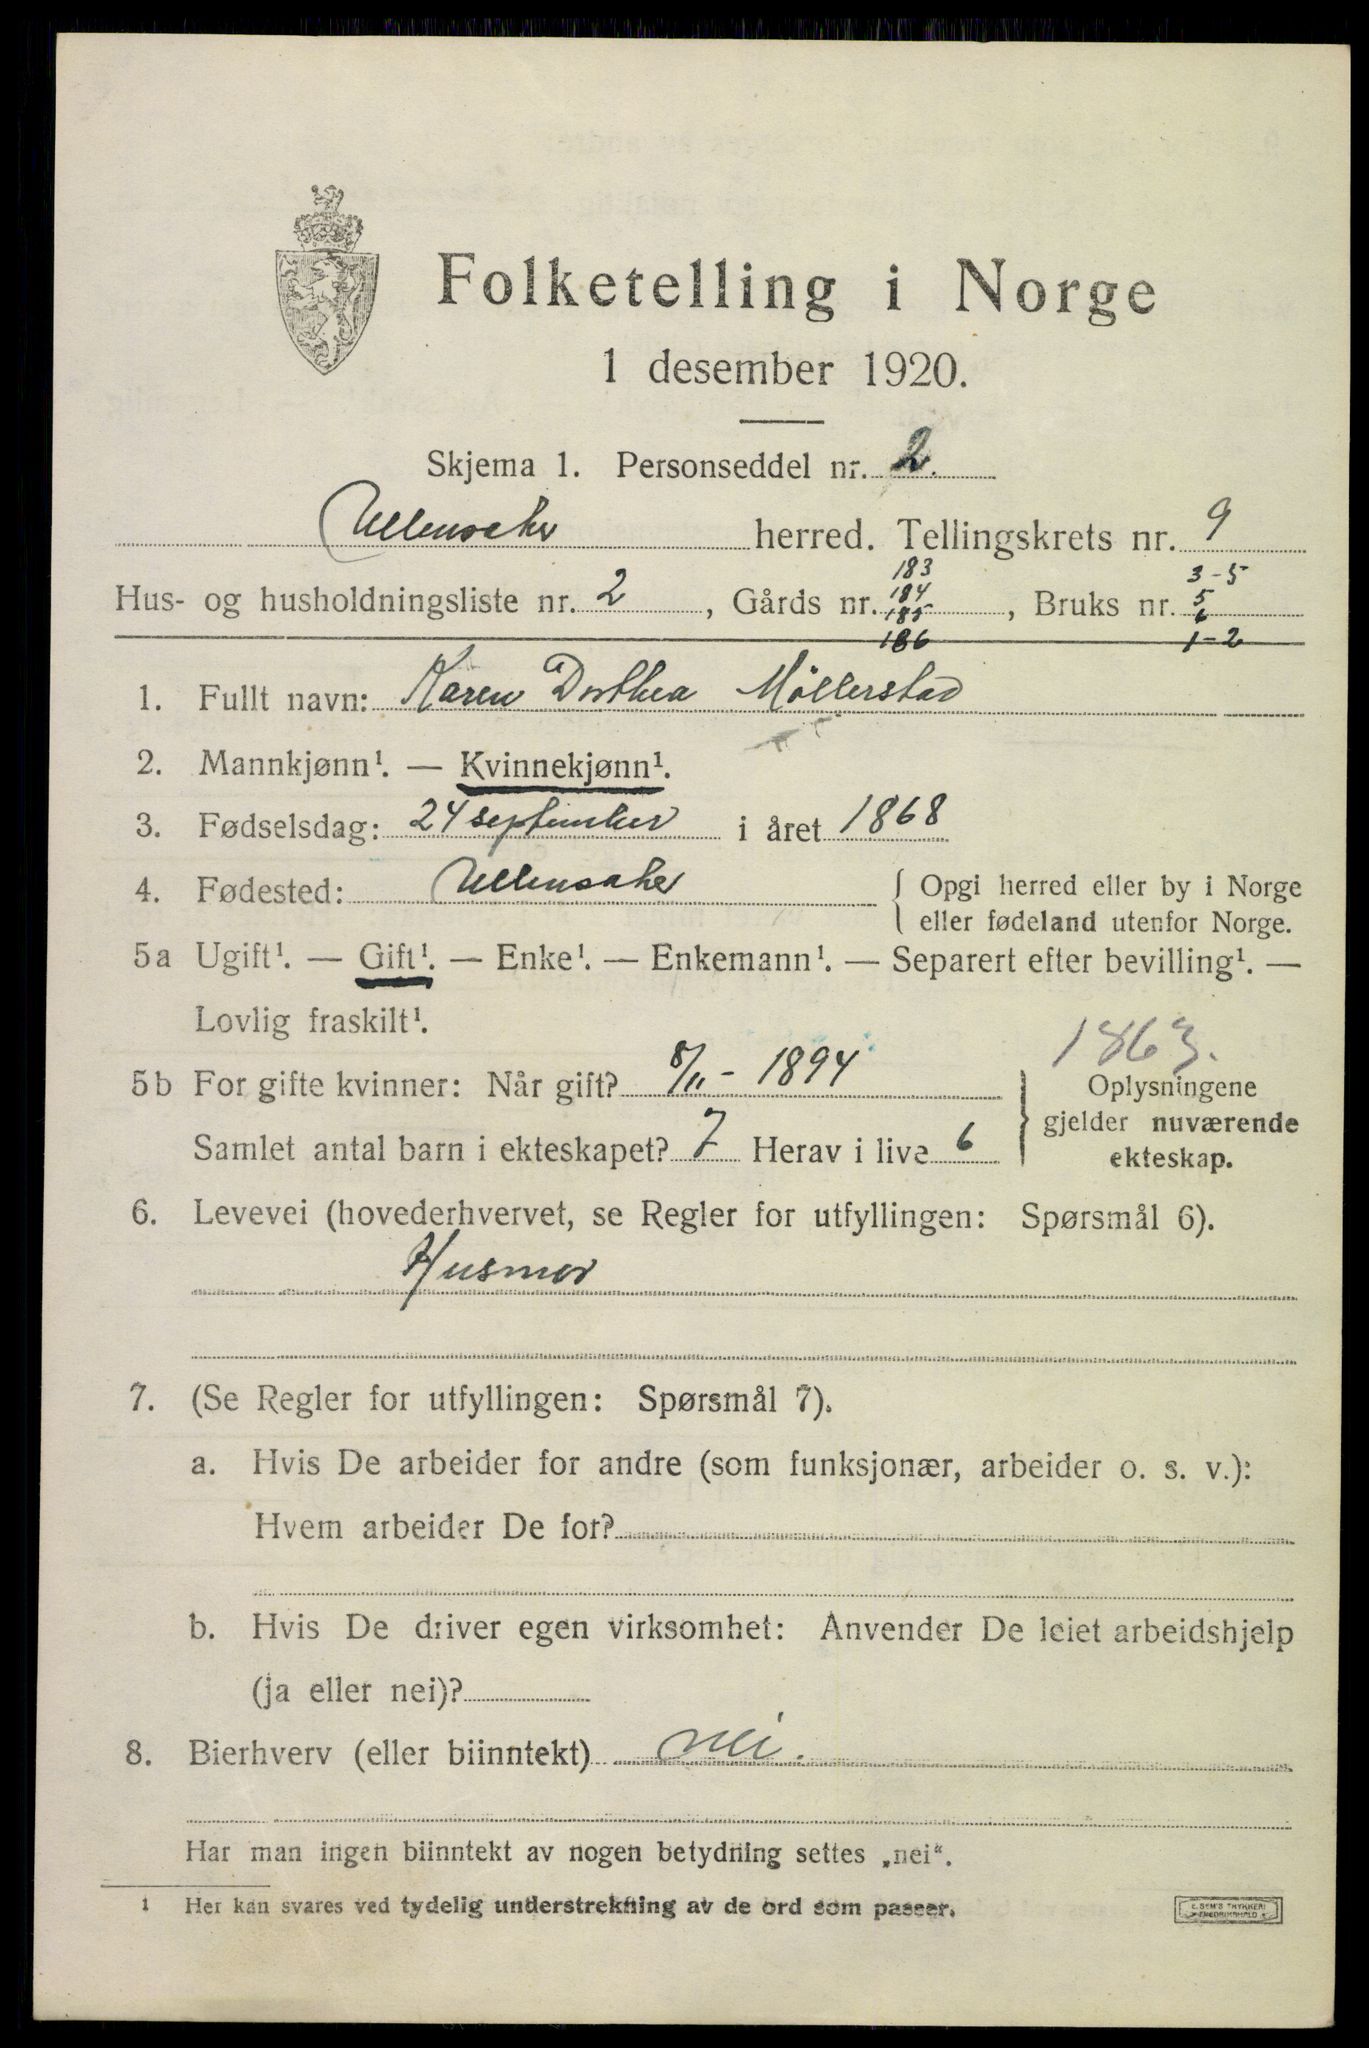 Folketelling i Norge
1 desember 1920.
Skjema 1. Personseddel nr. 2.
Ullensaker herred. Tellingskrets nr. 9
183 3-5
184 5
Hus- og husholdningsliste nr. 2, Gårds nr. 185, Bruks nr. 6
186 1-2
1. Fullt navn: Karen Dorthea Möllerstad
2. Mannkjønn¹. — Kvinnekjønn¹.
3. Fødselsdag: 24 september i året 1868
4. Fødested: Ullensaker { Opgi herred eller by i Norge
eller fødeland utenfor Norge.
5a Ugift¹. — Gift¹. — Enke¹. — Enkemann¹. — Separert efter bevilling¹. —
Lovlig fraskilt¹.
1863.
5b For gifte kvinner: Når gift? 8/11 - 1894 } Oplysningene
gjelder nuværende
Samlet antal barn i ekteskapet? 7 Herav i live 6 ekteskap.
6. Levevei (hovederhvervet, se Regler for utfyllingen: Spørsmål 6).
Husmor
7. (Se Regler for utfyllingen: Spørsmål 7).
a. Hvis De arbeider for andre (som funksjonær, arbeider o. s. v.):
Hvem arbeider De for?
b. Hvis De driver egen virksomhet: Anvender De leiet arbeidshjelp
(ja eller nei)?
8. Bierhverv (eller biinntekt) nei.
Har man ingen biinntekt av nogen betydning settes „nei“.
1 Her kan svares ved tydelig understrekning av de ord som passer.